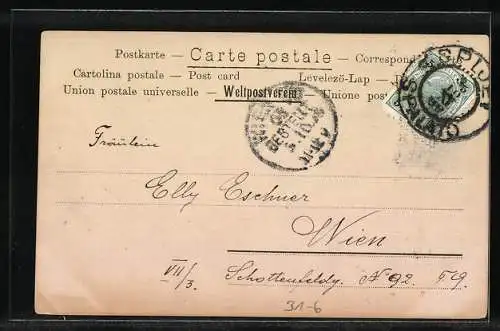 Postkarte — Carte postale — Correspond
Cartolina postale — Post card Levelező-Lap —
Union postale universelle — Weltpostverein — Unione post
Fräulein
Elly Eschner
Wien
VII/3. Schottenfeldg. No 92. T 9.
31-6